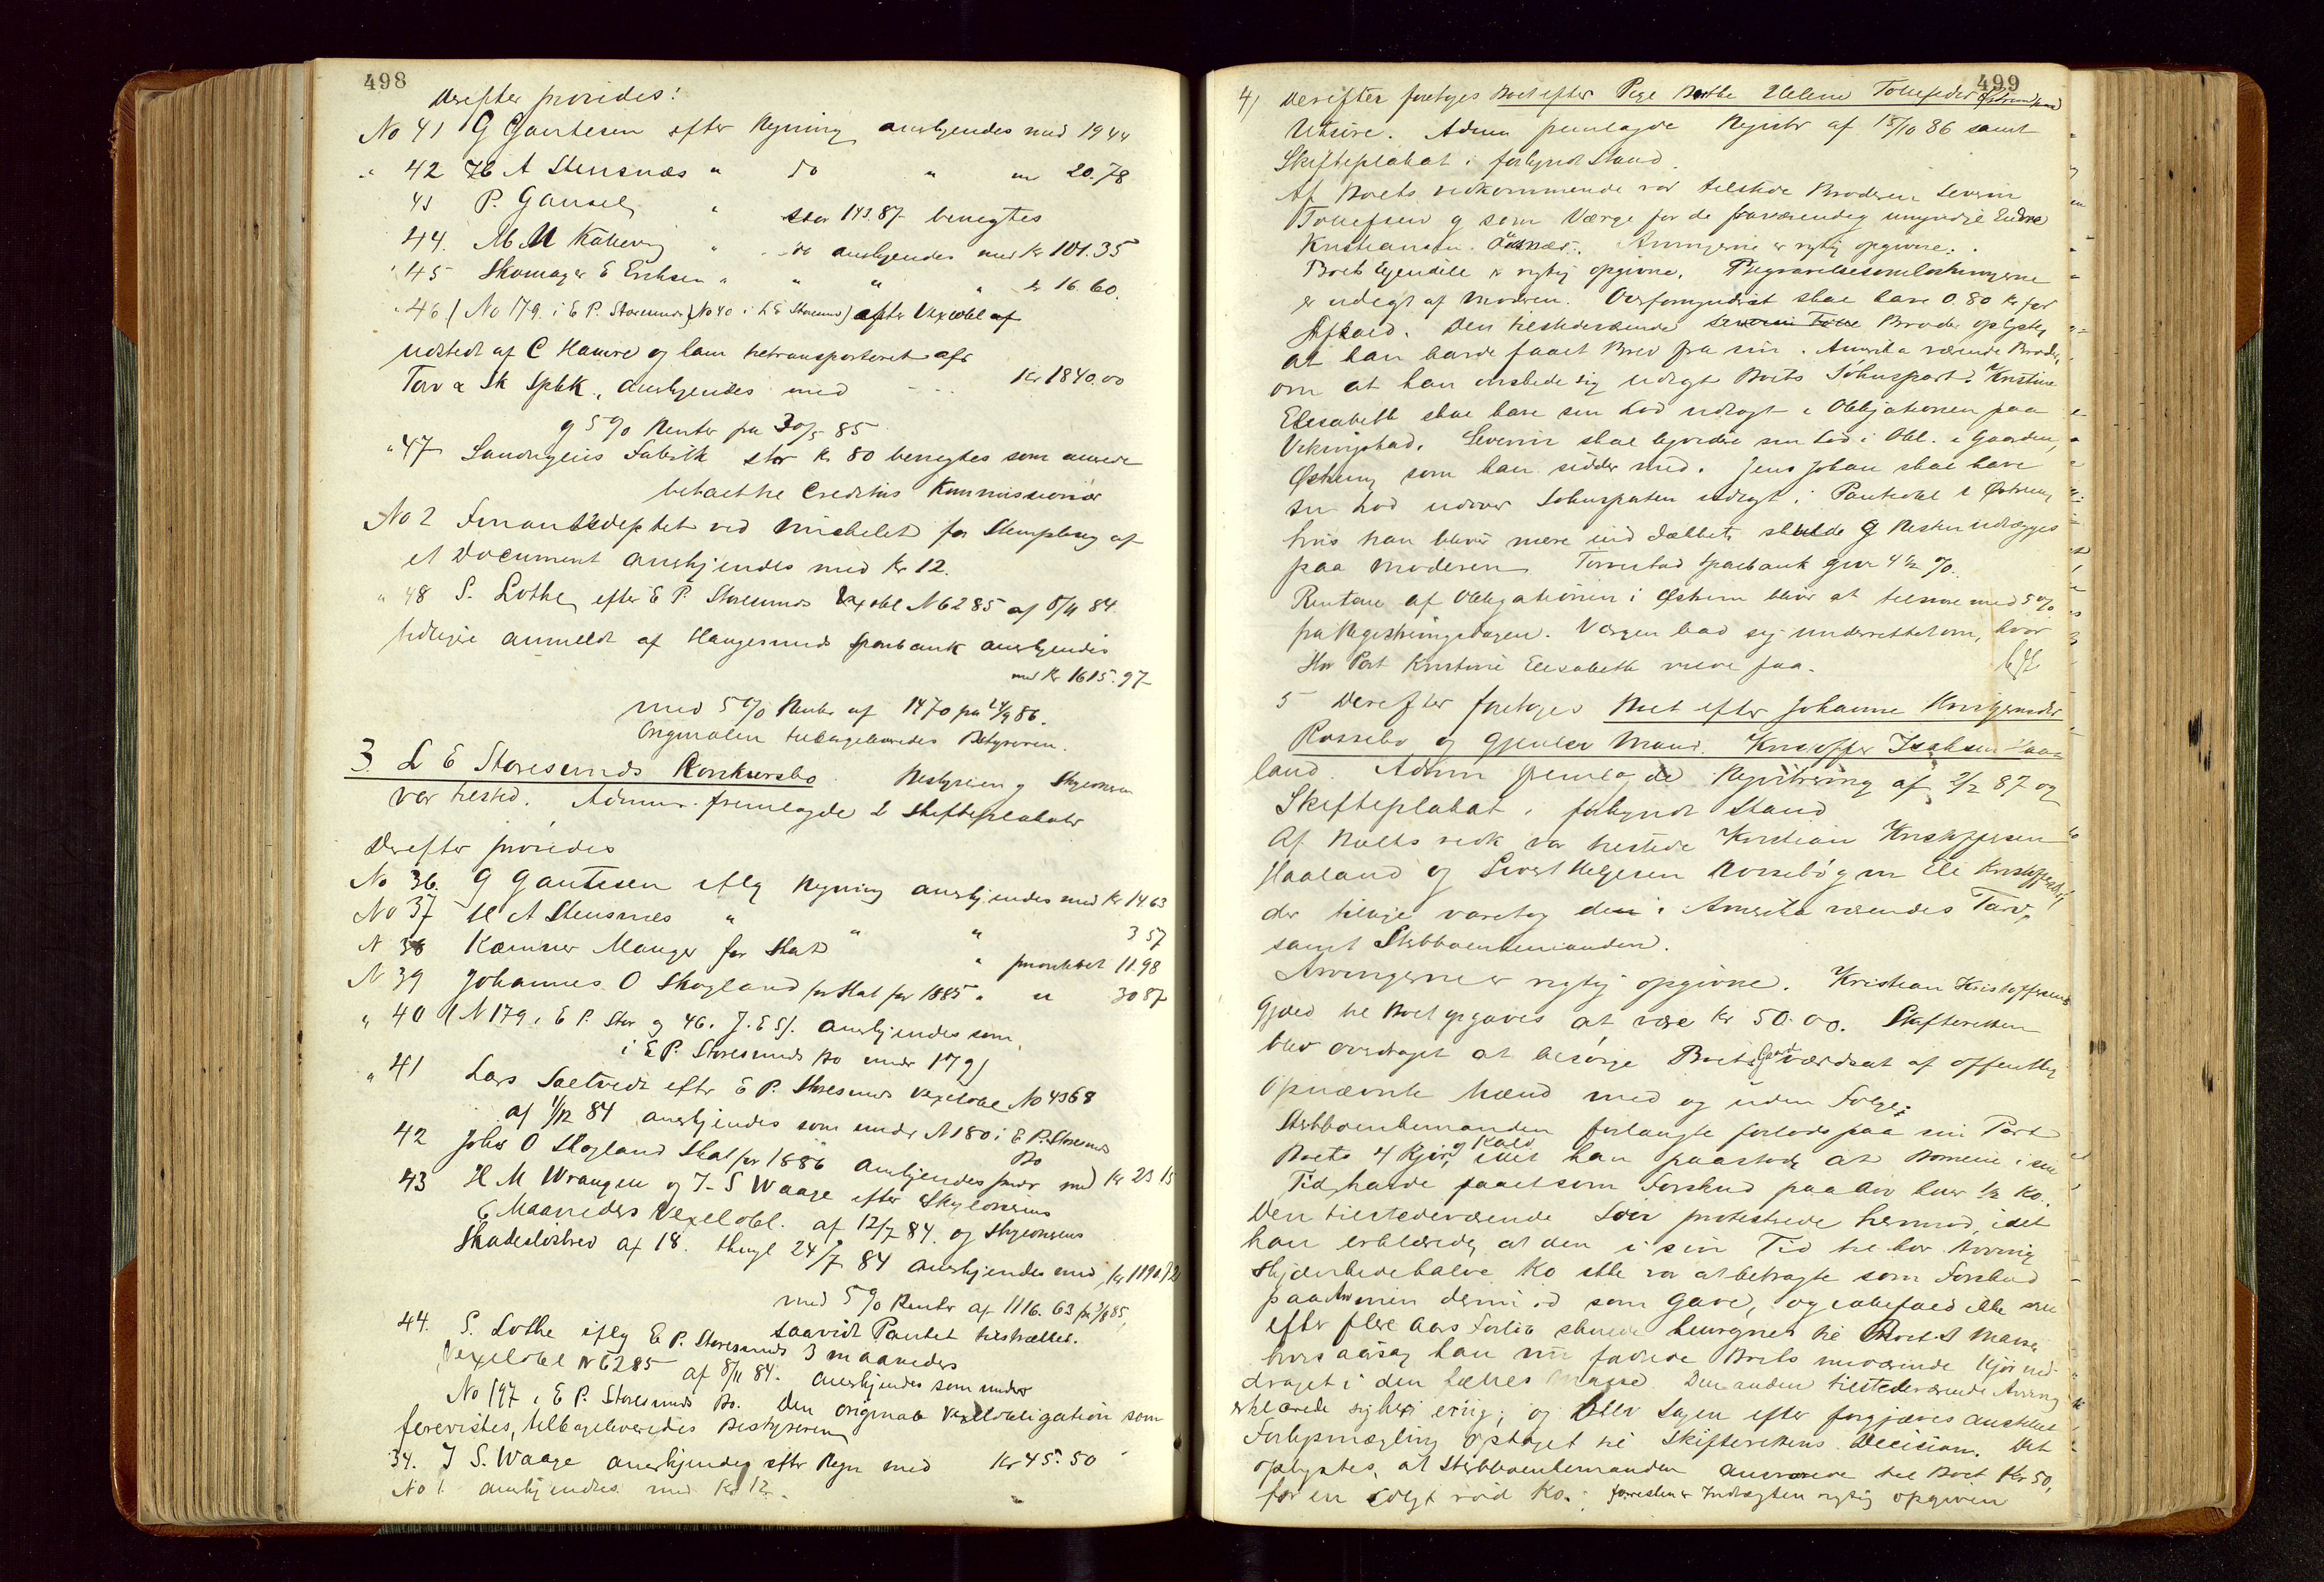 498
Derefter provides:
No 41 G Gautesen efter Regning anerkjendes med 19 44
" 42 H A Stensnæs " do " " 20.78
43 P. Gausel " stor 143.87 benegtes
44. M M Kallevig " do anerkjendes med Kr 101.35
" 45 Skomager E Erichsen " " " " Kr 16.60.
" 46 (No 179 i E P. Storesunds) (No 40 i L E Storesund) efter Vexelobl af
udstedt af C Hamre og ham retransporteret af
Torv a Sk Spbk., anerkjendes med Kr 1840.00
g 5 % Renter fra 30/5 85
" 47 Sandnæs Fabrik stor Kr 80 benegtes som
betalt til Creditors Kommissionær
No 2 Finantsdeptet ved Michelet for Stempling af
et Document anerkjendes med Kr 12.
" 48 S. Lothe, efter E P. Storesunds Vexelobl N 6285 af 8/11 84.
tidligere anmeldt af Haugesunds Sparebank anerkjendes
med Kr 1615.97
med 5 % Renter af 1470 fra 24/9 86.
Originalen tilbageleveredes Bestyreren.
3. L E Storesunds Konkursbo. Bestyreren og Skyldneren
var tilsted. Admin. fremlagde 2 Skifteplakater
Derefter provides
No 36. G Gautesen iflg Regning anerkjendes med Kr 14.63
No 37 H A Stensnes " " " 3 57
N 38 Kæmner Mauger for Skat " prioritet 11.98
N 39 Johannes O Skogland for Skat for 1885 " " 30 87
" 40 (N 179 i E P. Stor og 46. J. E S). anerkjendes som
i E P. Storesunds Bo under 179)
" 41 Lars Sætvedt efter E P. Storesunds Vexelobl No 4368
af 1/12 84 anerkjendes som under N 180 i E P. Storesunds
Bo
42 Johs O Skogland Skat for 1886 anerkjendes prior med Kr 23 15
43 H M Wrangen og J. S Waage efter Skyldnerens
6 Maaneders Vexelobl. af 12/7 84. og Skyldnerens
Skadesløsbrev af 18. thingl 24/7 84 anerkjendes med Kr 1190.72
med 5 % Renter af 1116.63 fra 3/8 85,
saavidt Pantet tilstrækker.
44. S. Lothe iflg E P. Storesunds 3 maaneders
Vexelobl N 6285 af 8/11 84. anerkjendes som under
No 197 i E P. Storesunds Bo. Den originale Vexelobligation som
forevistes, tilbageleveredes Bestyreren
34. J S. Waage anerkjendes efter Regn med Kr 45.50
No 1. anerkjendes med Kr 12.
499
4) Derefter foretoges Boet efter Pige Berthe Helene Tollefsdtr
Utsire. Admin fremlagde Registr af 15/10 86 samt
Skifteplakat i forkyndt Stand.
Af Boets vedkommende var tilstede Broderen Severin
Tollefsen g som Værge for de fraværende g umyndige Endre
Kristiansen. Arvingerne er rigtig opgivne.
Boets Eiendele er rigtig opgivne. Begravelsesomkostningerne
er udlagt af Moderen. Overformynderiet skal have 0.80 Kr for
Afkald. Den tilstedeværende Broder oplyste,
at han havde faaet Brev fra sin i Amerika værende Broder,
om at han ønskede sig udlagt Boets Sølvuspart. Kristine
Elisabeth skal have sin Lod udlagt i Obligationen paa
Vikingstad. Severin skal ligeledes sin Lod i Obl. i Gaarden
Østrem, som han sidder med. Jens Johan skal have
sin Lod udover udlagt i Panteobl i Østrem,
hvis han bliver mere end skulde g Resten udlægges
paa Moderen. Torvestad Sparebank giver 4 1/2 %.
Renten af Obligationen i Østrem bliver at tilsvare med 5 %
fra Registreringsdagen. Værgen bad sig underrettet om, hvor
stor Part Kristine Elisabeth vilde faa.
5 Derefter foretoges Boet efter Johanne Kristensdtr
Rossebø og gjenlev Mand. Kristoffer Isaksen Haa-
land. Admin fremlagde Registrering af 2/2 87 og
Skifteplakat i forkyndt Stand
Af Boets vedk var tilstede Kristian Kristoffersen
Haaland og Sivert Helgesen Rossebø g m Eli Kristoffersdtr,
der tillige varetog den i Amerika værendes Tarv,
samt Stervboenkemanden.
Arvingerne er rigtig opgivne. Kristian Kristoffersens
Gjæld til Boet opgaves at være Kr 50.00. Skifteretten
blev overdraget at besørge Boets Gaard værdsat af offentlig
opnævnte Mænd med og uden Følge.
Stervboenkemanden forlangte forlods paa sin Part
Boets 4 Kjør, og Kalv idet han paastod at Børnene i sin
Tid havde faaet som Forskud paa Arv hver 1/2 Ko.
Den tilstedeværende Søn protesterede hermod, idet
han erklærede, at den i sin Tid til hver Arving
skjænkede halve Ko ikke var at betragte som Forskud
paa Arv men derimod som Gave, og i alfald ikke nu
efter flere Aars Forløb skulde henregnes til Boets Masse,
hvorsaarsag han nu fordrede Boets nuværende Kjør ind-
draget i den fælles Masse. Den anden tilstedeværende Arving
erklærede sig heri enig; og blev Sagen efter forgjæves anstillet
Forligsmægling optaget til Skifterettens Decision. Det
oplystes, at Stervboenkemanden ansvarede til Boet Kr 50,
for en solgt rød Ko. forresten er Indtægten rigtig opgiven